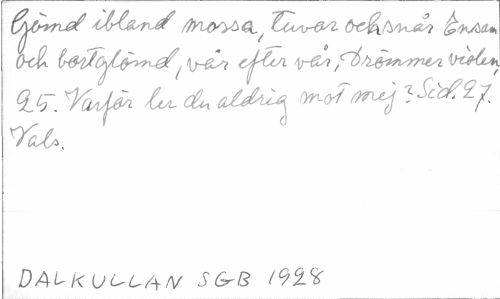 Gömd ibland mossa, tuvor och snår Ensam
och bortglömd, vår efter vår, Drömmer violen
25. Varför ler du aldrig mot mej? Sid. 27.
Vals.
DALKULLAN SGB 1928